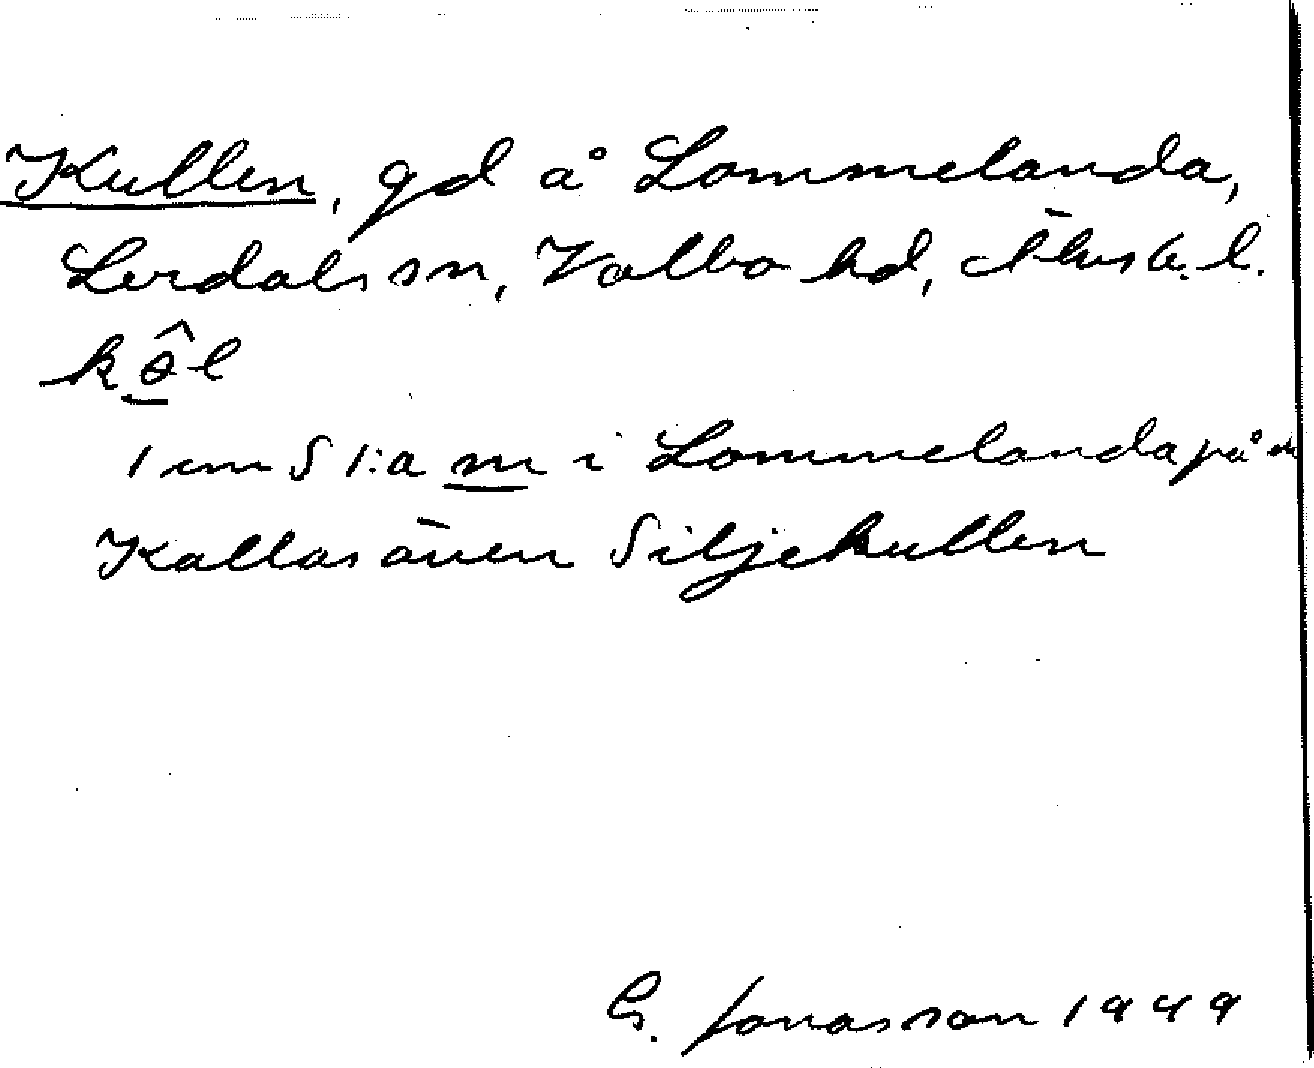 Kullen, gd å Lommelanda,
Lerdals sn, Valbo hd, Älvsb. l.
kôl
1 cm S 1:a m i Lommelanda på
Kallas även Siljekullen
G. Jonasson 1949